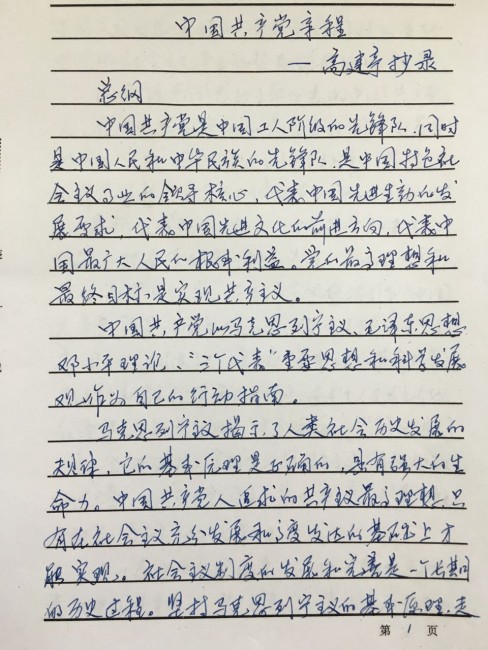 中国共产党章程
—高建亭抄录
总纲
中国共产党是中国工人阶级的先锋队,同时
是中国人民和中华民族的先锋队,是中国特色社
会主义事业的领导核心,代表中国先进生产力的发
展要求,代表中国先进文化的前进方向,代表中
国最广大人民的根本利益。党的最高理想和
最终目标是实现共产主义。
中国共产党以马克思列宁主义、毛泽东思想、
邓小平理论、“三个代表”重要思想和科学发展
观作为自己的行动指南。
马克思列宁主义揭示了人类社会历史发展的
规律,它的基本原理是正确的,具有强大的生
命力。中国共产党人追求的共产主义最高理想,只
有在社会主义充分发展和高度发达的基础上才
能实现。社会主义制度的发展和完善是一个长期
的历史过程。坚持马克思列宁主义的基本原理,走
第 1 页